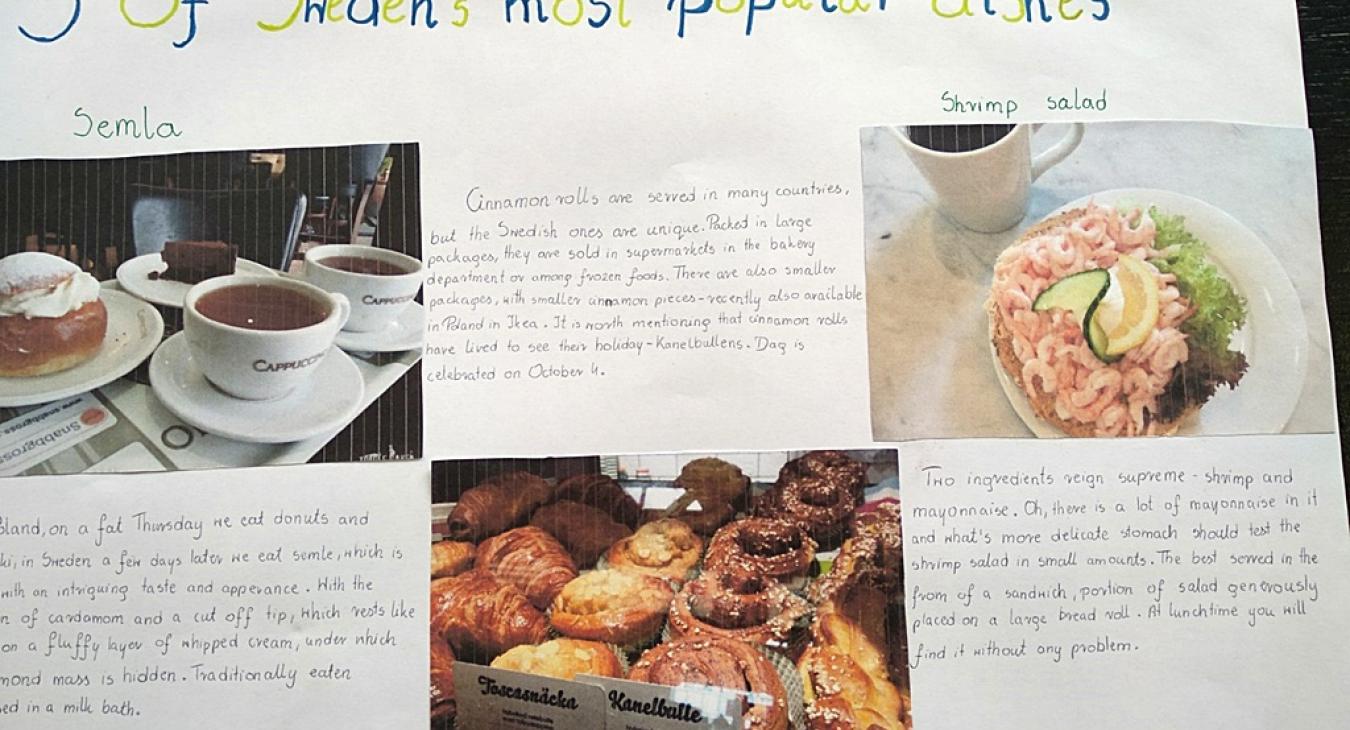 5 Of Sweden's most popular dishes
Semla
CAPPUCCINO
CAPPUCC
Snabbgross
land, on a fat Thursday we eat donuts and
ki, in Sweden a few days later we eat semle, which is
with an intriguing taste and apperance. With the
n of cardamom and a cut off tip, which rests like
on a fluffy layer of whipped cream, under which
mond mass is hidden. Traditionally eaten
ed in a milk bath.
Cinnamon rolls are served in many countries,
but the Swedish ones are unique. Packed in large
packages, they are sold in supermarkets in the bakery
department or among frozen foods. There are also smaller
packages, with smaller cinnamon pieces - recently also available
in Poland in Ikea. It is worth mentioning that cinnamon rolls
have lived to see their holiday - Kanelbullens. Dag is
celebrated on October 4.
Toscasnäcka
Kanelbulle
Shrimp salad
Two ingredients reign supreme - shrimp and
mayonnaise. Oh, there is a lot of mayonnaise in it
and what's more delicate stomach should test the
shrimp salad in small amounts. The best served in the
from of a sandwich, portion of salad generously
placed on a large bread roll. At lunchtime you will
find it without any problem.